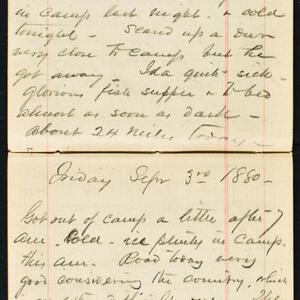 in camp last night - & cold
tonight - Scared up a deer
very close to camp but he
got away - Ida quite sick -
glorious fish supper & to bed
almost as soon as dark -
about 24 miles today -
Friday Sept 3rd 1880 -
Got out of camp a little after 7
am. Cold - ice plenty in camp
this am. Road today very
good considering the country, which